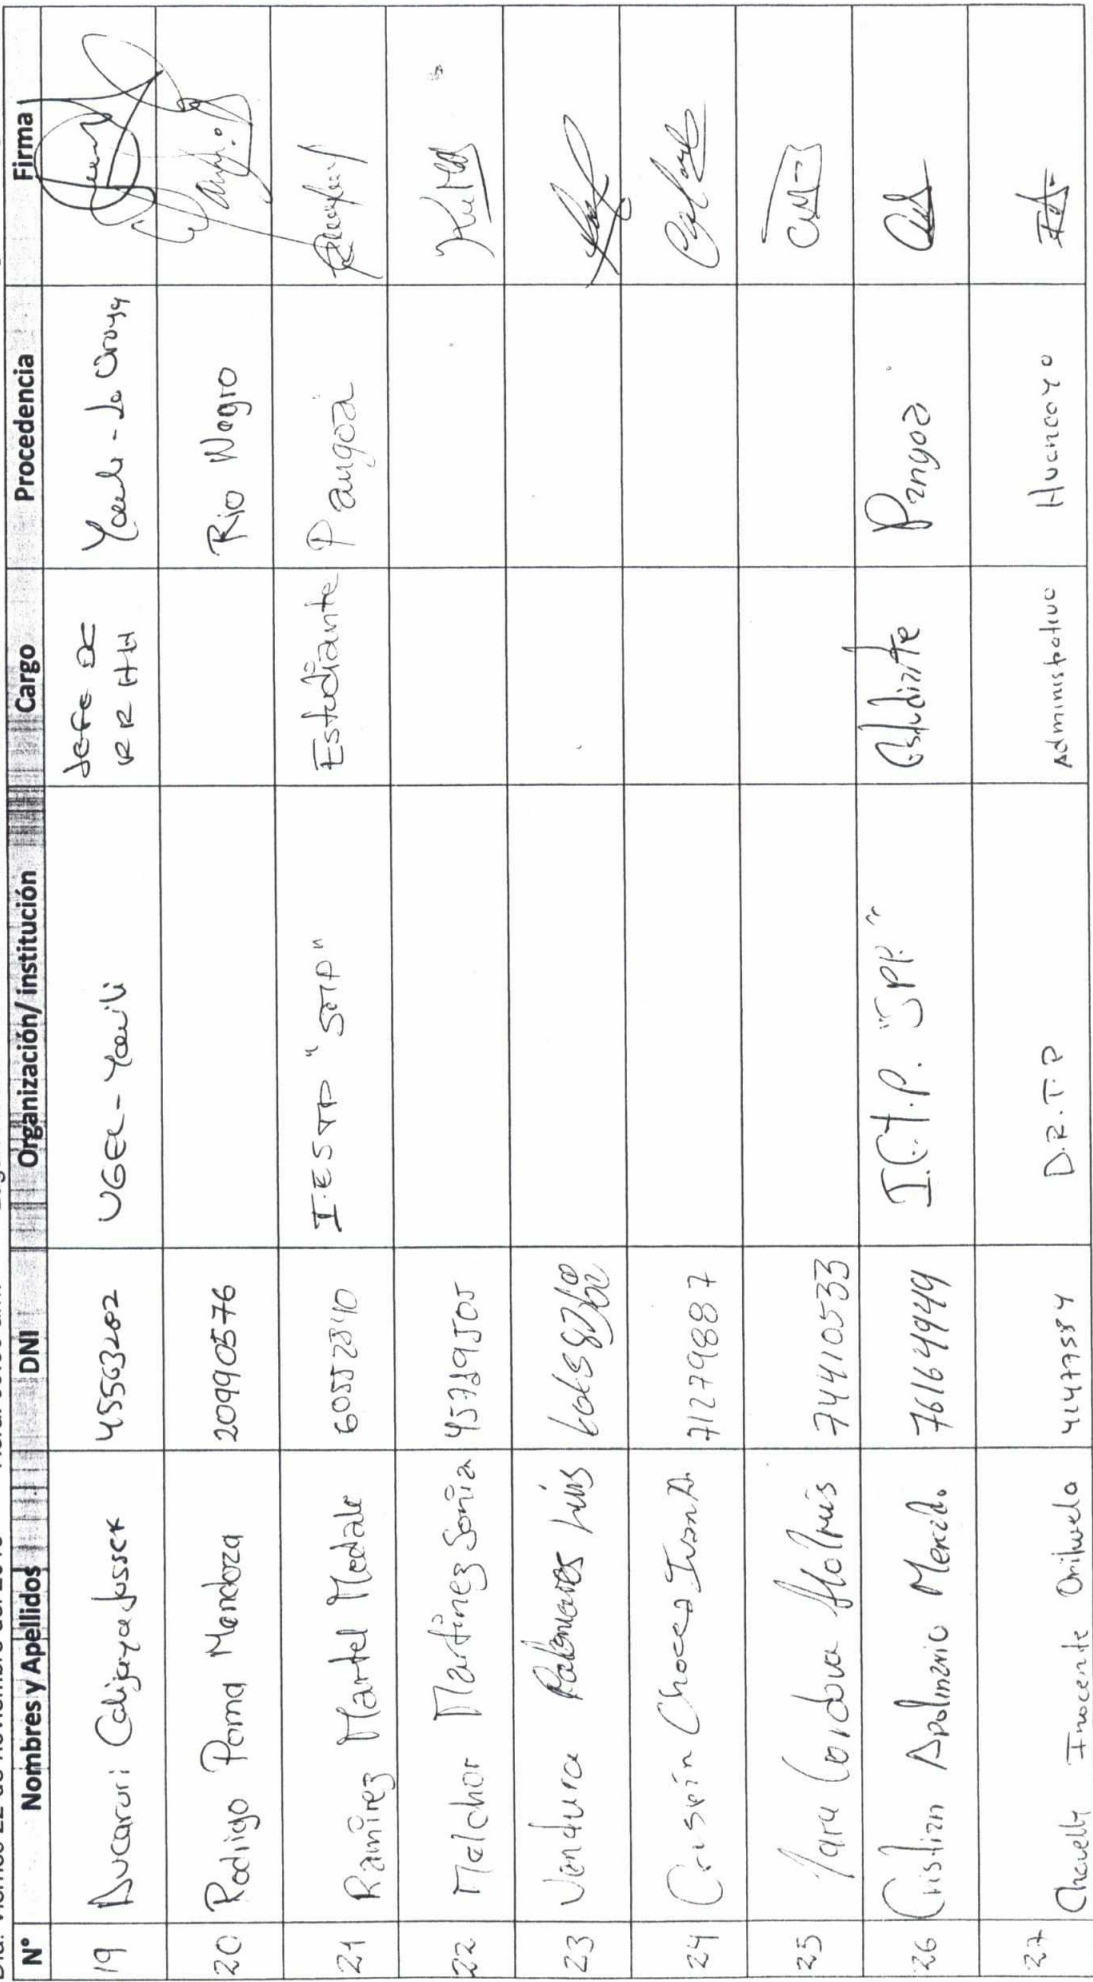 N° Nombres y Apellidos DNI Organización/ institución Cargo Procedencia Firma
19 Aucaruri Calijaya Jossek 45563202 UGEL - Yauli Jefe de RRHH Yauli - La Oroya
20 Rodrigo Poma Mendoza 20990576 Rio Negro
21 Ramírez Martel Medali 60552840 I.E.S.T.P "STTP" Estudiante Pangoa
22 Melchor Martínez Sonia 45789505
23 Ventura Palomares Luis
24 Crispín Chocca Ivan D. 71279887
25 Yara Cordova 74410533
26 Cristian Apolinario Mercado 76164949 Estudiante Pangoa
27 Chavelly Inocente Orihuela 41477584 D.R.T.P Administrativo Huancayo